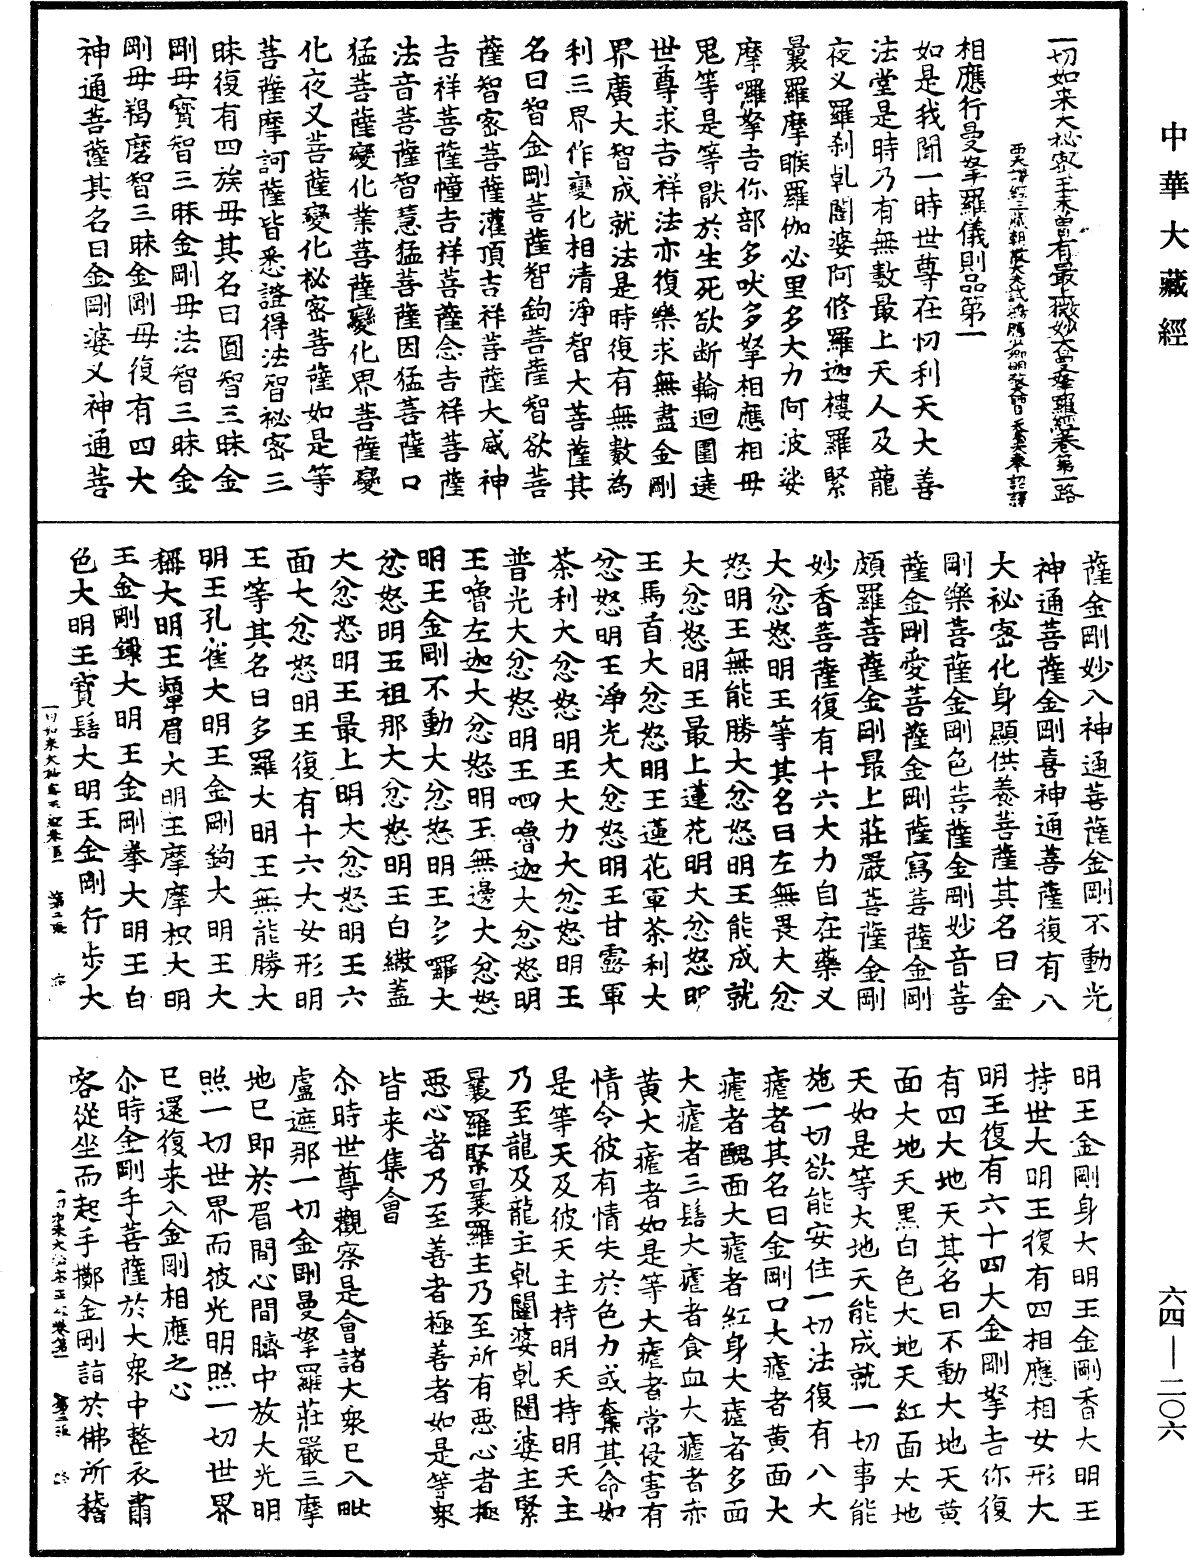 中華大藏經
一切如來大秘密王未曾有最上微妙大曼拏羅經卷第一 路
西天譯經三藏朝散大夫試鴻臚少卿明教大師臣天息災奉 詔譯
相應行曼拏羅儀則品第一
如是我聞一時世尊在忉利天大善
法堂是時乃有無數最上天人及龍
夜叉羅刹乹闥婆阿修羅迦樓羅緊
曩羅摩睺羅伽必里多大力阿波娑
摩囉拏吉你部多吠多拏相應相毋
鬼等是等猒於生死欲断輪迴圍遶
世尊求吉祥法亦復樂求無盡金剛
界廣大智成就法是時復有無數為
利三界作變化相清淨智大菩薩其
名曰智金剛菩薩智鉤菩薩智欲菩
薩智密菩薩灌頂吉祥菩薩大威神
吉祥菩薩幢吉祥菩薩念吉祥菩薩
法音菩薩智慧猛菩薩因猛菩薩口
猛菩薩變化業菩薩變化界菩薩變
化夜叉菩薩變化秘密菩薩如是等
菩薩摩訶薩皆悉證得法智祕密三
昧復有四族毋其名曰圓智三昧金
剛毋寳智三昧金剛毋法智三昧金
剛毋羯磨智三昧金剛毋復有四大
神通菩薩其名曰金剛婆叉神通菩
薩金剛妙入神通菩薩金剛不動光
神通菩薩金剛喜神通菩薩復有八
大祕密化身顯供養菩薩其名曰金
剛樂菩薩金剛色菩薩金剛妙音菩
薩金剛愛菩薩金剛薩寫菩薩金剛
頗羅菩薩金剛最上莊嚴菩薩金剛
妙香菩薩復有十六大力自在藥叉
大忿怒明王等其名曰左無畏大忿
怒明王無能勝大忿怒明王能成就
大忿怒明王最上蓮花明大忿怒明
王馬首大忿怒明王蓮花軍茶利大
忿怒明王淨光大忿怒明王甘露軍
茶利大忿怒明王大力大忿怒明王
普光大忿怒明王呬嚕迦大忿怒明
王嚕左迦大忿怒明王無邊大忿怒
明王金剛不動大忿怒明王多囉大
忿怒明王祖那大忿怒明王白繖蓋
大忿怒明王最上明大忿怒明王六
面大忿怒明王復有十六大女形明
王等其名曰多羅大明王無能勝大
明王孔雀大明王金剛鉤大明王大
稱大明王顰眉大明王摩摩枳大明
王金剛鏁大明王金剛拳大明王白
色大明王寳髻大明王金剛行步大
明王金剛身大明王金剛香大明王
持世大明王復有四相應相女形大
明王復有六十四大金剛拏吉你復
有四大地天其名曰不動大地天黄
面大地天黒白色大地天紅面大地
天如是等大地天能成就一切事能
施一切欲能安住一切法復有八大
瘧者其名曰金剛口大瘧者黄面大
瘧者醜面大瘧者紅身大瘧者多面
大瘧者三髻大瘧者食血大瘧者赤
黄大瘧者如是等大瘧者常侵害有
情令彼有情失於色力或奪其命如
是等天及彼天主持明天持明天主
乃至龍及龍主乹闥婆乹闥婆主緊
曩羅緊曩羅主乃至所有惡心者極
惡心者乃至善者極善者如是等衆
皆来集會
尒時世尊觀察是會諸大衆已入毗
盧遮那一切金剛曼拏羅莊嚴三摩
地已即於眉間心間臍中放大光明
照一切世界而彼光明照一切世界
已還復来入金剛相應之心
尒時金剛手菩薩於大衆中整衣肅
容從坐而起手擲金剛詣於佛所稽
六四—二〇六